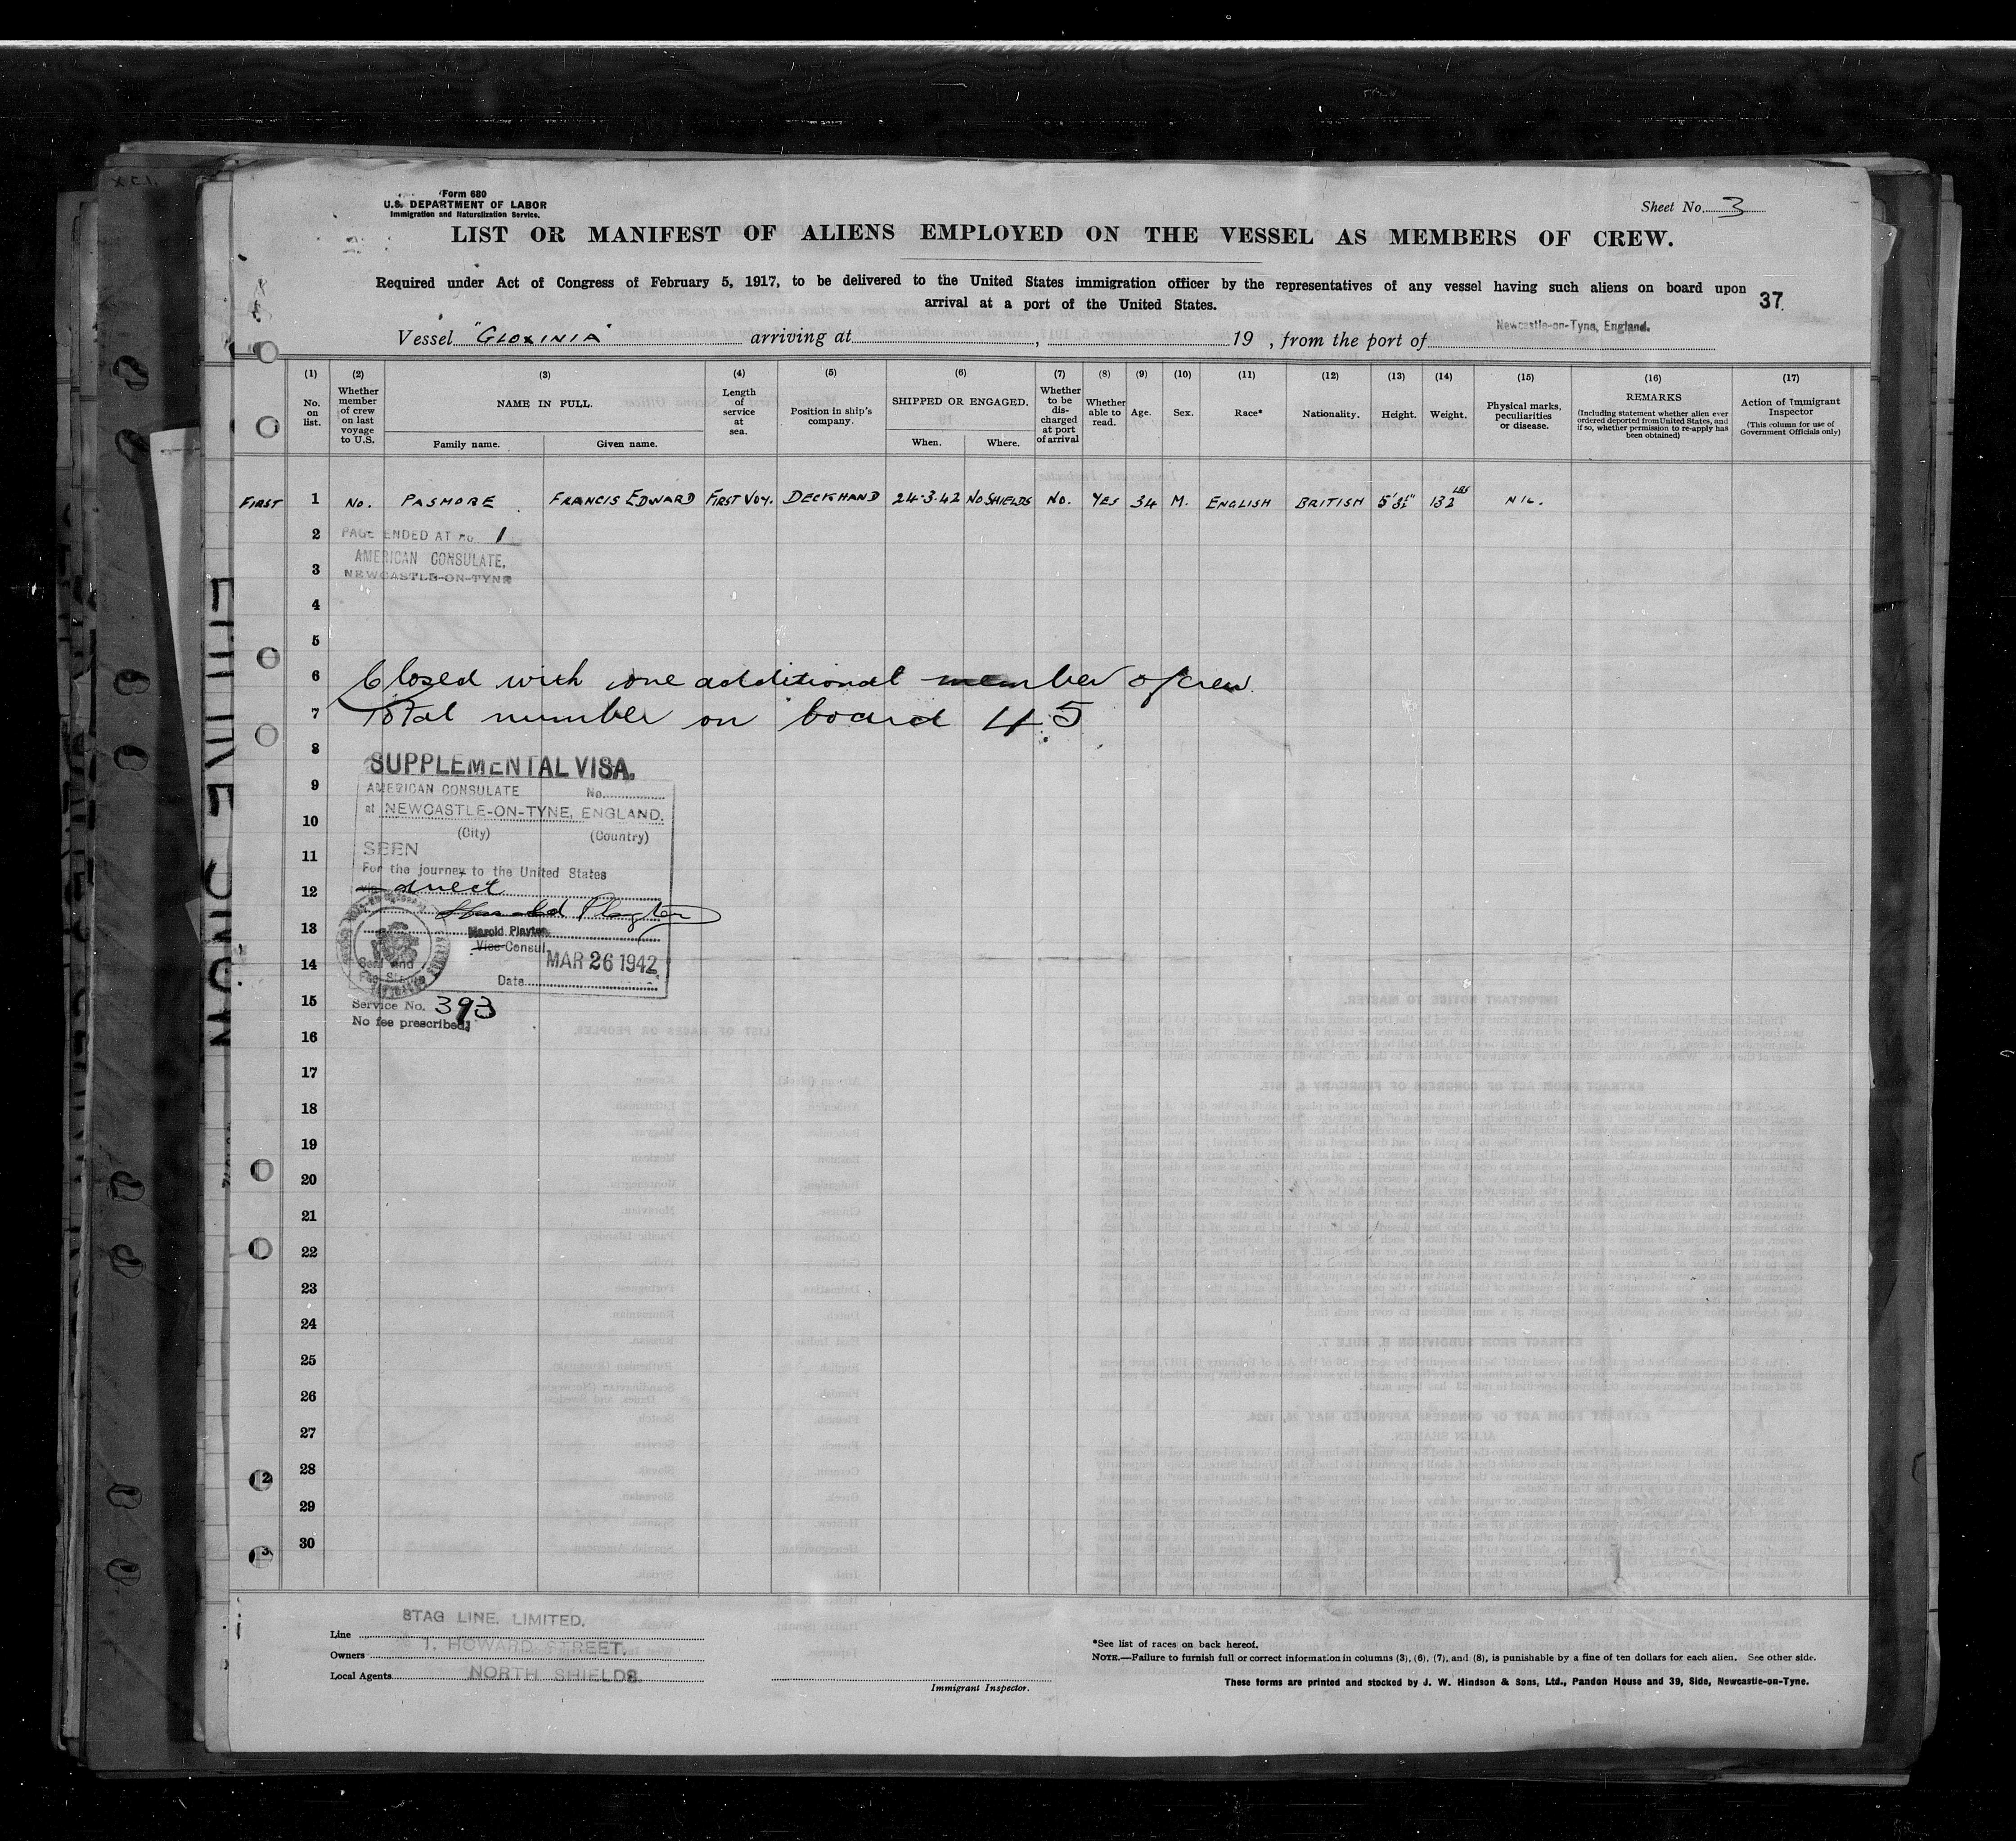 Form 680
U.S. DEPARTMENT OF LABOR
Immigration and Naturalization Service.
Sheet No. 3
LIST OR MANIFEST OF ALIENS EMPLOYED ON THE VESSEL AS MEMBERS OF CREW.
Required under Act of Congress of February 5, 1917, to be delivered to the United States immigration officer by the representatives of any vessel having such aliens on board upon
arrival at a port of the United States.
37
Vessel "GLOXINIA" arriving at , 19 , from the port of Newcastle-on-Tyne, England.
(1) (2) (3) (4) (5) (6) (7) (8) (9) (10) (11) (12) (13) (14) (15) (16) (17)
No. on list.
Whether member of crew on last voyage to U.S.
NAME IN FULL.
Family name. Given name.
Length of service at sea.
Position in ship's company.
SHIPPED OR ENGAGED.
When. Where.
Whether to be discharged at port of arrival
Whether able to read.
Age.
Sex.
Race*
Nationality.
Height.
Weight.
Physical marks, peculiarities or disease.
REMARKS
(Including statement whether alien ever ordered deported from United States, and if so, whether permission to re-apply has been obtained)
Action of Immigrant Inspector
(This column for use of Government Officials only)
FIRST 1 No. PASMORE FRANCIS EDWARD FIRST VOY. DECKHAND 24.3.42 NO SHIELDS No. YES 34 M. ENGLISH BRITISH 5'3½" 132 LBS NIL.
2 PAGE ENDED AT No 1
AMERICAN CONSULATE,
3 NEWCASTLE-ON-TYNE
4
5
6 Closed with one additional member of crew.
7 Total number on board 45
8 SUPPLEMENTAL VISA.
9 AMERICAN CONSULATE No.
at NEWCASTLE-ON-TYNE, ENGLAND.
10 (City) (Country)
11 SEEN
For the journey to the United States
12 via direct
Harold Playter
13 Harold Playter
Vice Consul
14 Seal and Fee Stamp
MAR 26 1942
Date
15 Service No. 393
No fee prescribed
16
17
18
19
20
21
22
23
24
25
26
27
28
29
30
2
3
Line STAG LINE, LIMITED.
Owners 1, HOWARD STREET,
Local Agents NORTH SHIELDS.
Immigrant Inspector.
*See list of races on back hereof.
NOTE.—Failure to furnish full or correct information in columns (3), (6), (7), and (8), is punishable by a fine of ten dollars for each alien. See other side.
These forms are printed and stocked by J. W. Hindson & Sons, Ltd., Pandon House and 39, Side, Newcastle-on-Tyne.